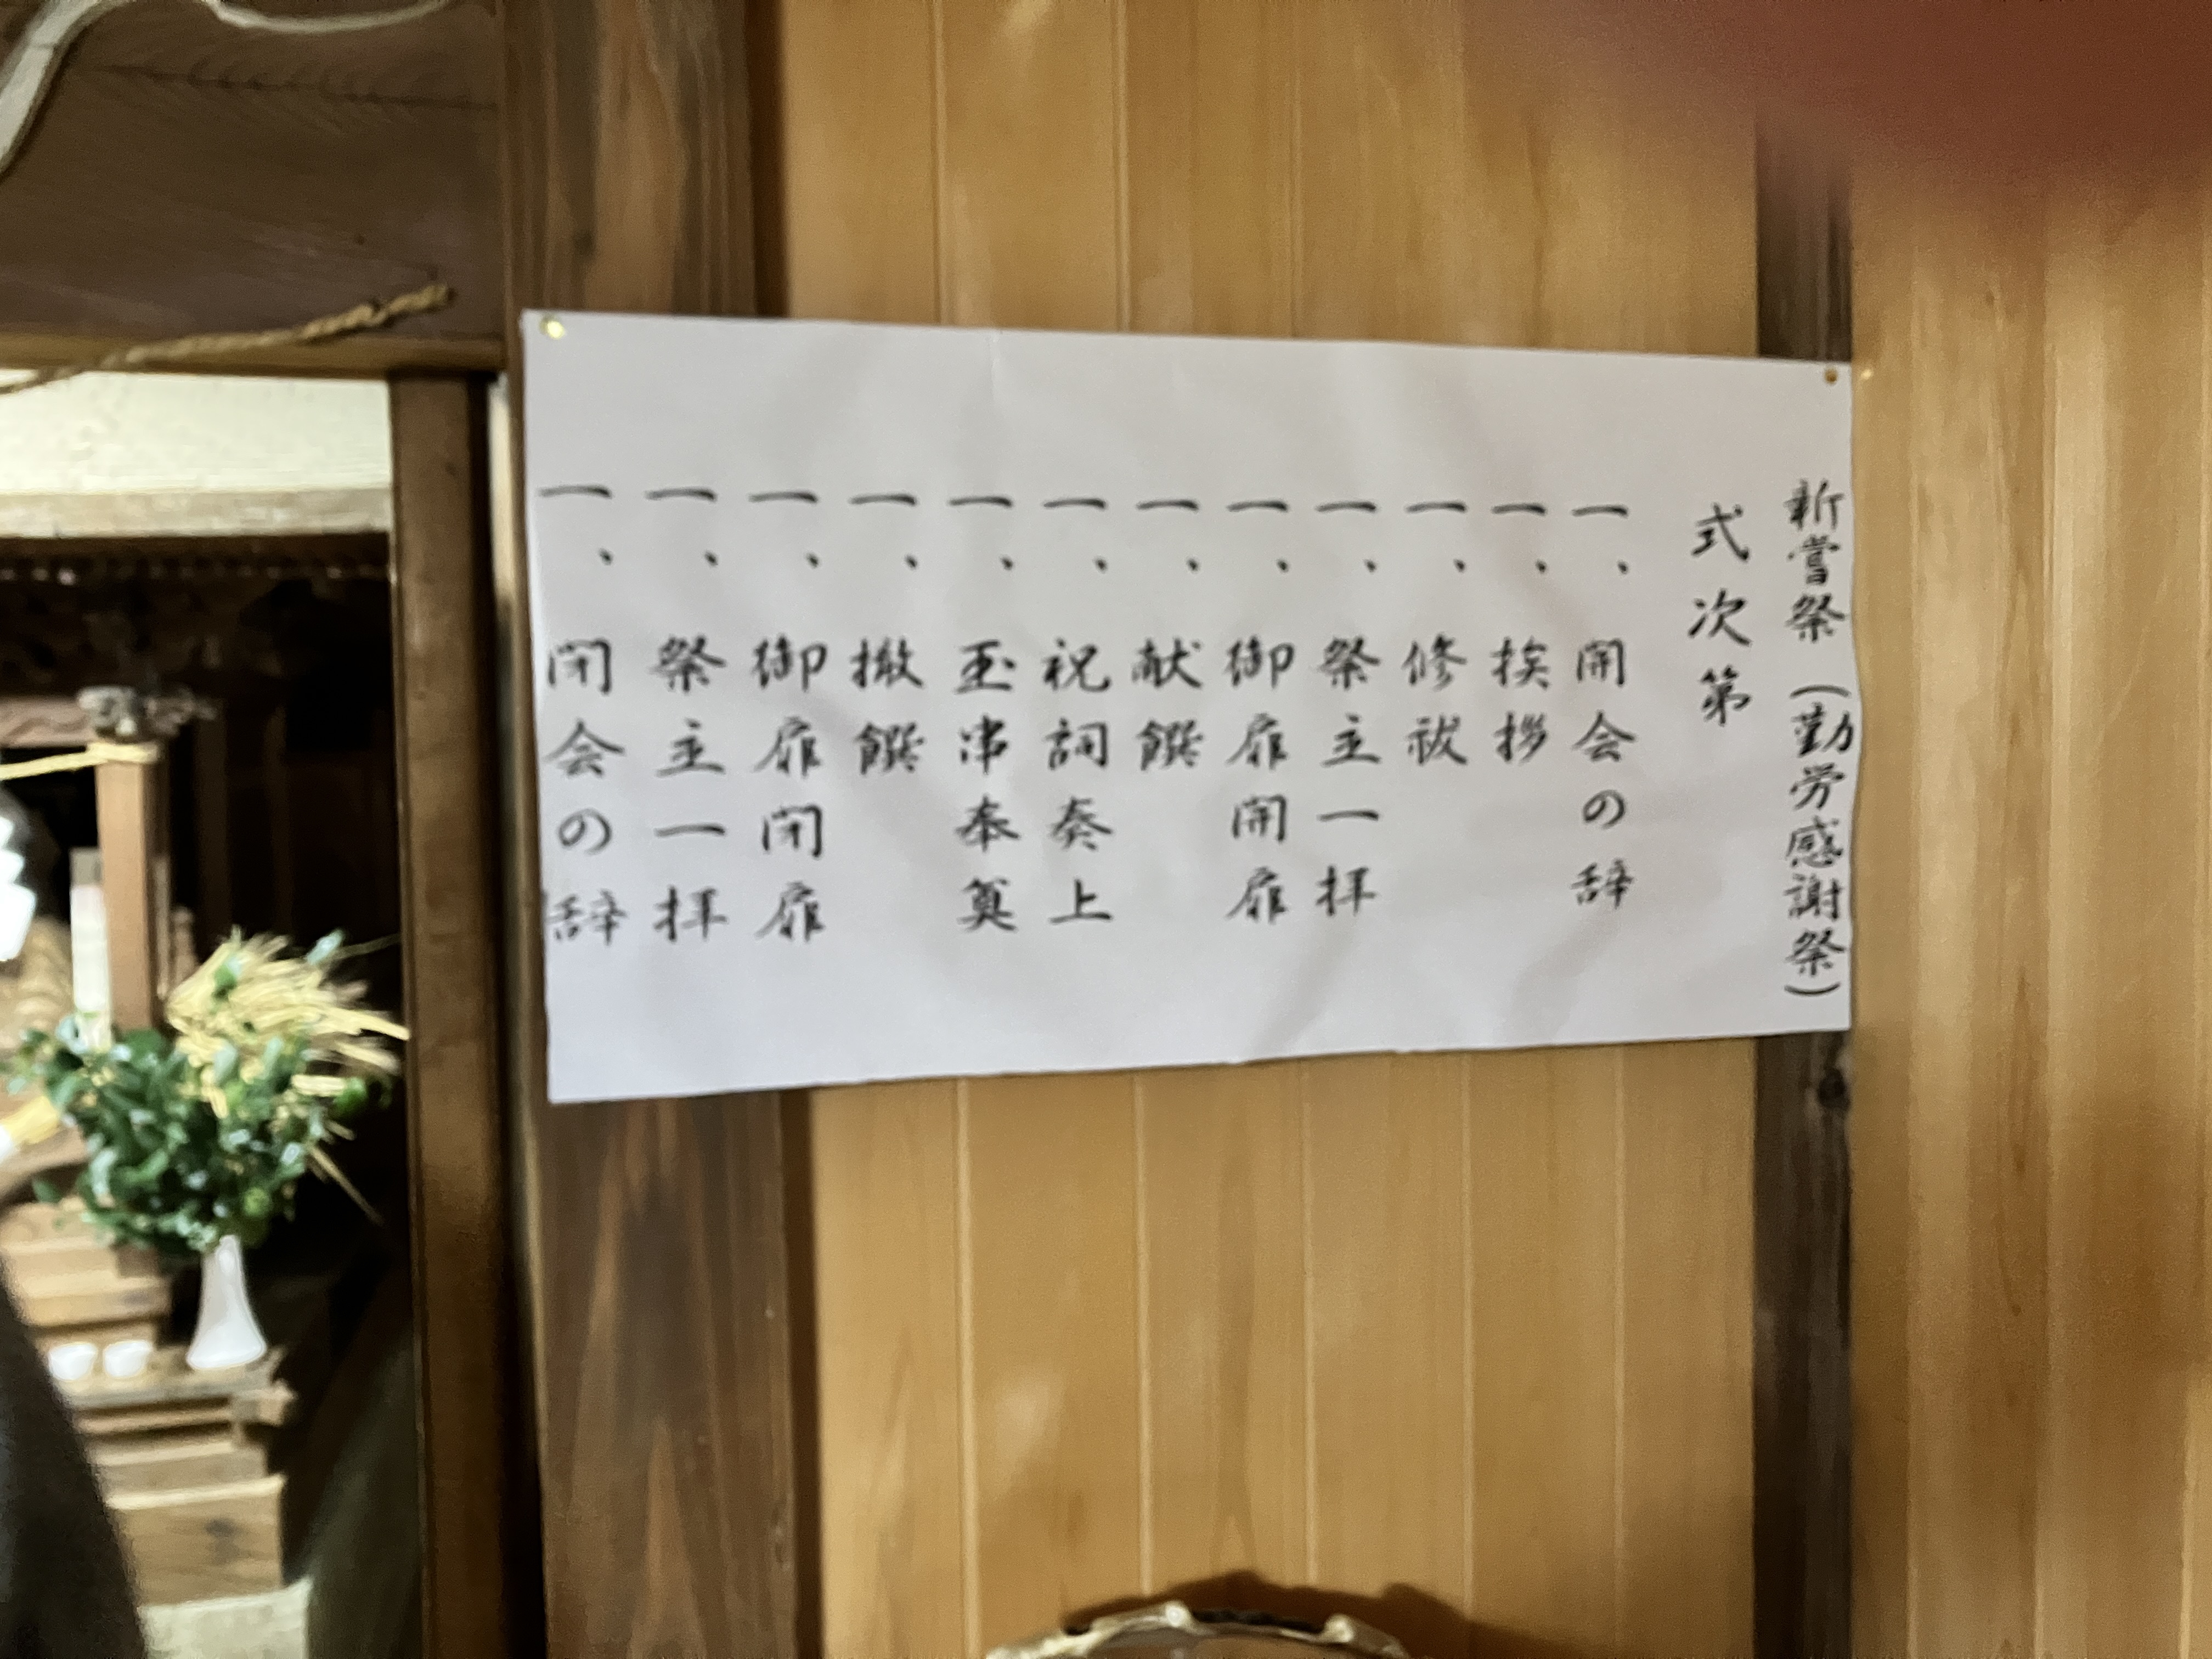 新嘗祭（勤労感謝祭）
式次第
一、開会の辞
一、挨拶
一、修祓
一、祭主一拝
一、御扉開扉
一、献饌
一、祝詞奏上
一、玉串奉奠
一、撤饌
一、御扉閉扉
一、祭主一拝
一、閉会の辞